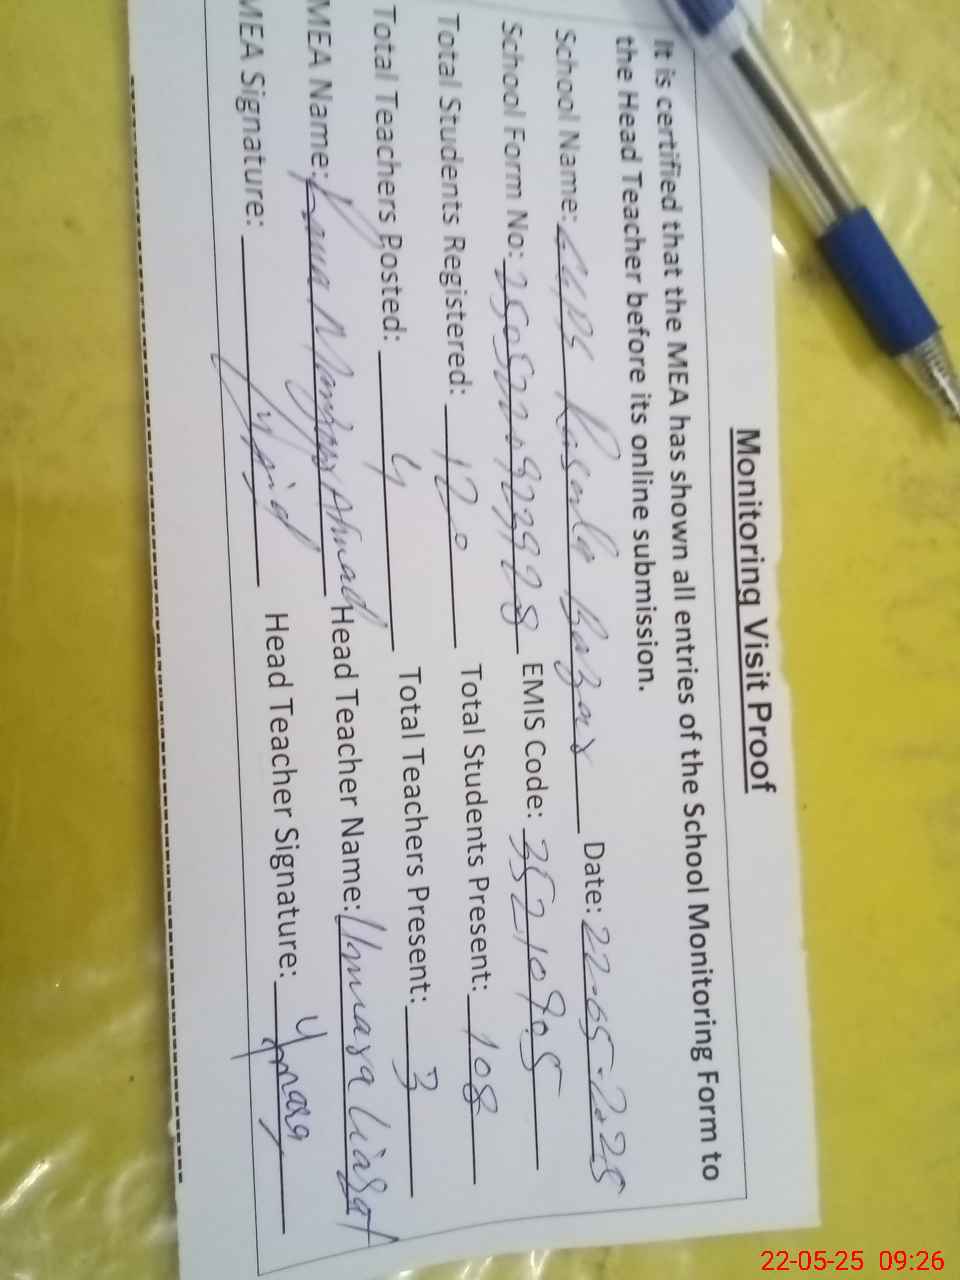 Monitoring Visit Proof
It is certified that the MEA has shown all entries of the School Monitoring Form to
the Head Teacher before its online submission.
School Name: Rasula Bazar Date: 22-05-2025
School Form No: EMIS Code: 35210905
Total Students Registered: 120 Total Students Present: 108
Total Teachers Posted: 4 Total Teachers Present: 3
MEA Name: Ahmad Head Teacher Name: Ummara Liaqat
MEA Signature: Head Teacher Signature:
22-05-25 09:26